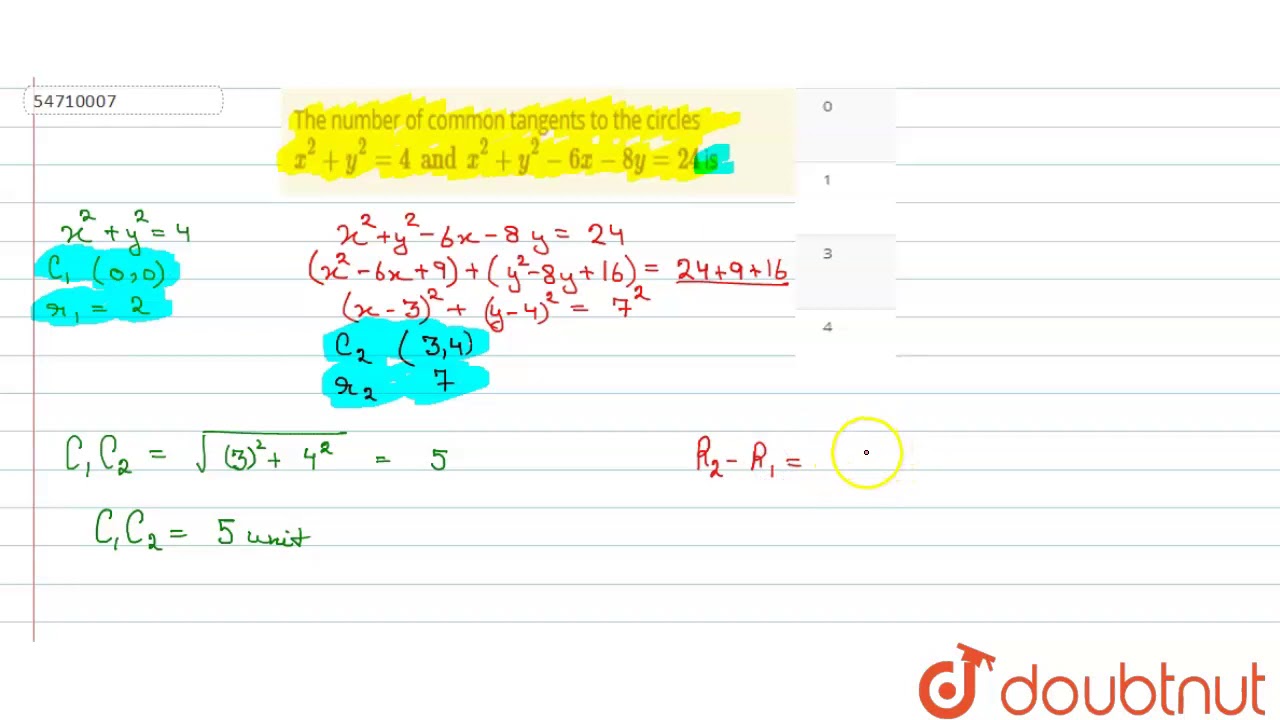 54710007
The number of common tangents to the circles
x² + y² = 4 and x² + y² − 6x − 8y = 24 is
0
1
3
4
x² + y² = 4
C₁ (0,0)
r₁ = 2
x² + y² − 6x − 8y = 24
(x² − 6x + 9) + (y² − 8y + 16) = 24 + 9 + 16
(x − 3)² + (y − 4)² = 7²
C₂ (3,4)
r₂ 7
C₁C₂ = √(3)² + 4² = 5
C₁C₂ = 5 unit
R₂ − R₁ =
doubtnut